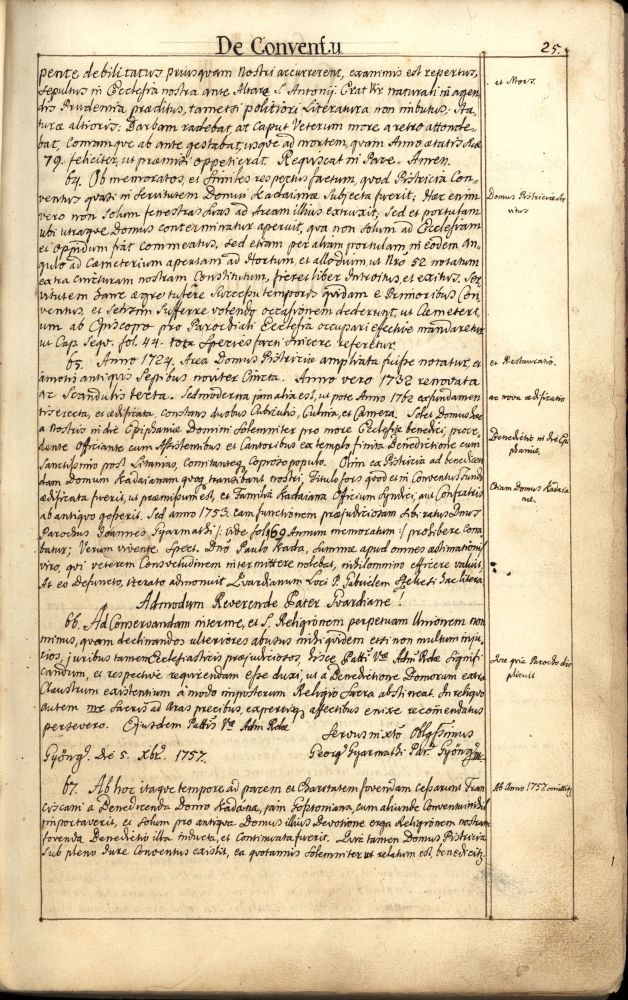 De Conventu
25.
pente debilitatus priusquam Nostri accurrerent, exanimis est repertus,
sepultus in Ecclesia nostra ante Altare S. Antonij. Erat Vir naturali in agen-
dis Prudentia præditus, tametsi politiori Literatura non imbutus; Sta-
turæ altioris: Barbam radebat, at Caput Veterum more a retro attonde-
bat, Comamque ab ante gestabat, usque ad mortem, quam Anno ætatis suæ
79. feliciter, ut præmisi oppetierat. Requiscat in Pace. Amen.
et Mors.
64. Ob memoratos, et similes respectus factum, quod Pistricia Con-
ventus quasi in servitutem Domui Kadaianæ Subjecta fuerit; Hæc enim
vero non solum fenestras suas ad Aream illius extruxit, sed et portulam
ubi utraque Domus conterminatur aperuit, qua non solum ad Ecclesiam
et Oppidum fiat commeatus, sed etiam per aliam portulam in eodem An-
gulo ad Cæmeterium apertam ad Hortum, et allodium, ut Nro 52 notatum
extra cincturam nostram Constitutum, fieret liber Introitus, et exitus. Ser-
vitutem hanc ægre tulere Successu temporis quidam e Primoribus Con-
ventus, et Setzim Sufferre volendo occasionem dederunt, ut Cæmeteri-
um ab Episcopo pro Parochiali Ecclesia occupari effective mandaretur
ut Cap. Seqv. fol. 44. tota Species facti sincere refertur.
Domus Pistriciæ Ser-
vitus
65. Anno 1724. Area Domus Pistriciæ ampliata fuisse notatur, et
amotis antiquis Sepibus noviter Cincta. Anno vero 1732 renovata
ac Scandulis tecta. Sed moderna primatia est, ut pote Anno 1762 ex fundamen-
tis erecta, et ædificata, constans duobus Cubiculis, Culina, et Camera. Solet Domus hæc
a Nostris in die Epiphaniæ Domini Solemniter pro more Ecclesiæ benedici, proce-
dente Officiante cum Assistentibus et Cantoribus ex templo finita Benedictione cum
Sanctissimo post Litanias, comitanteq Copioso populo. Olim ex Pistricia ad benedicen-
dam Domum Kadaianam quoq transibant nostri, Titulo fors quod et in Conventus Fundo
ædificata fuerit, ut præmissum est, et Familia Kadaiana Officium Syndici, aut Confratris
ab antiquo gesserit. Sed anno 1753. eam functionem præjudiciosam sibi ratus Dnus
Parochus Joannes Gyarmathi /: vide fol. 169 Annum memoratum :/ prohibere cona-
batur; Verum vivente Spect. Dno Paulo Kada, summæ apud omnes æstimationis
viro, qui veterem Consvetudinem intermittere nolebat, nihilominus efficere valuit.
At eo Defuncto, iterato admonuit Guardianum Loci P. Gabrielem Speleti hac litera
et Restauratio.
ac nova ædificatio
Benedictio in die Epi-
phaniæ.
Etiam Domus Kadaia-
næ.
Admodum Reverende Pater Guardiane!
66. Ad Conservandam inter me, et S. Religionem perpetuam Unionem non
minus, quam declinandos ulteriores abusus mihi quidem etsi non multum inju-
rios, juribus tamen Ecclesiasticis præjudiciosos, hisce Pattis Væ Adm Rdæ Signifi-
candum, et respective requirendam esse duxi, ut a Benedictione Domorum extra
Claustrum existentium a modo imposterum Religio Sacra abstineat. In reliquo
autem me Sacris ad Aras precibus, expertisq affectibus enixe recomendatus
persevero. Ejusdem Pattis Væ Adm Rdæ
Servus in Xto Obligssimus
Gyöngy. Die 5. Xbr. 1757.
Georg Gyarmathi Par. Gyöngy
Quæ quia Parocho dis-
plicuit
67. Ab hoc itaque tempore ad pacem et Charitatem fovendam cessarunt Fran-
ciscani a Benedicenda Domo Kadana, jam Jostoniana, cum aliunde Conventui nihil
importaverit, et solum pro antiqua Domus illius Devotione erga Religionem nostram
fovenda Benedictio illa inducta, et Continuata fuerit. Quia tamen Domus Pistricia
sub pleno Jure Conventus existit, ea quotannis Solemniter ut relatum est, benedicitr.
Ab Anno 1757. omittitr